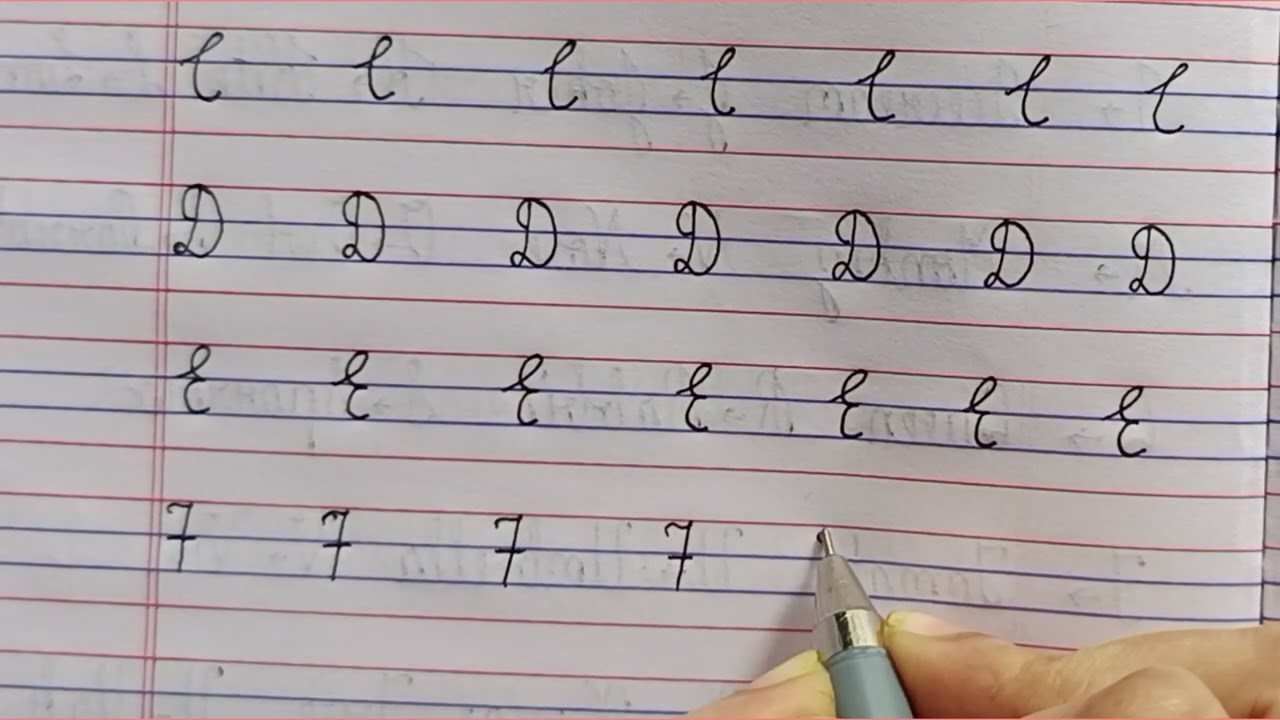 C C C C C C C
D D D D D D D
E E E E E E E
F F F F